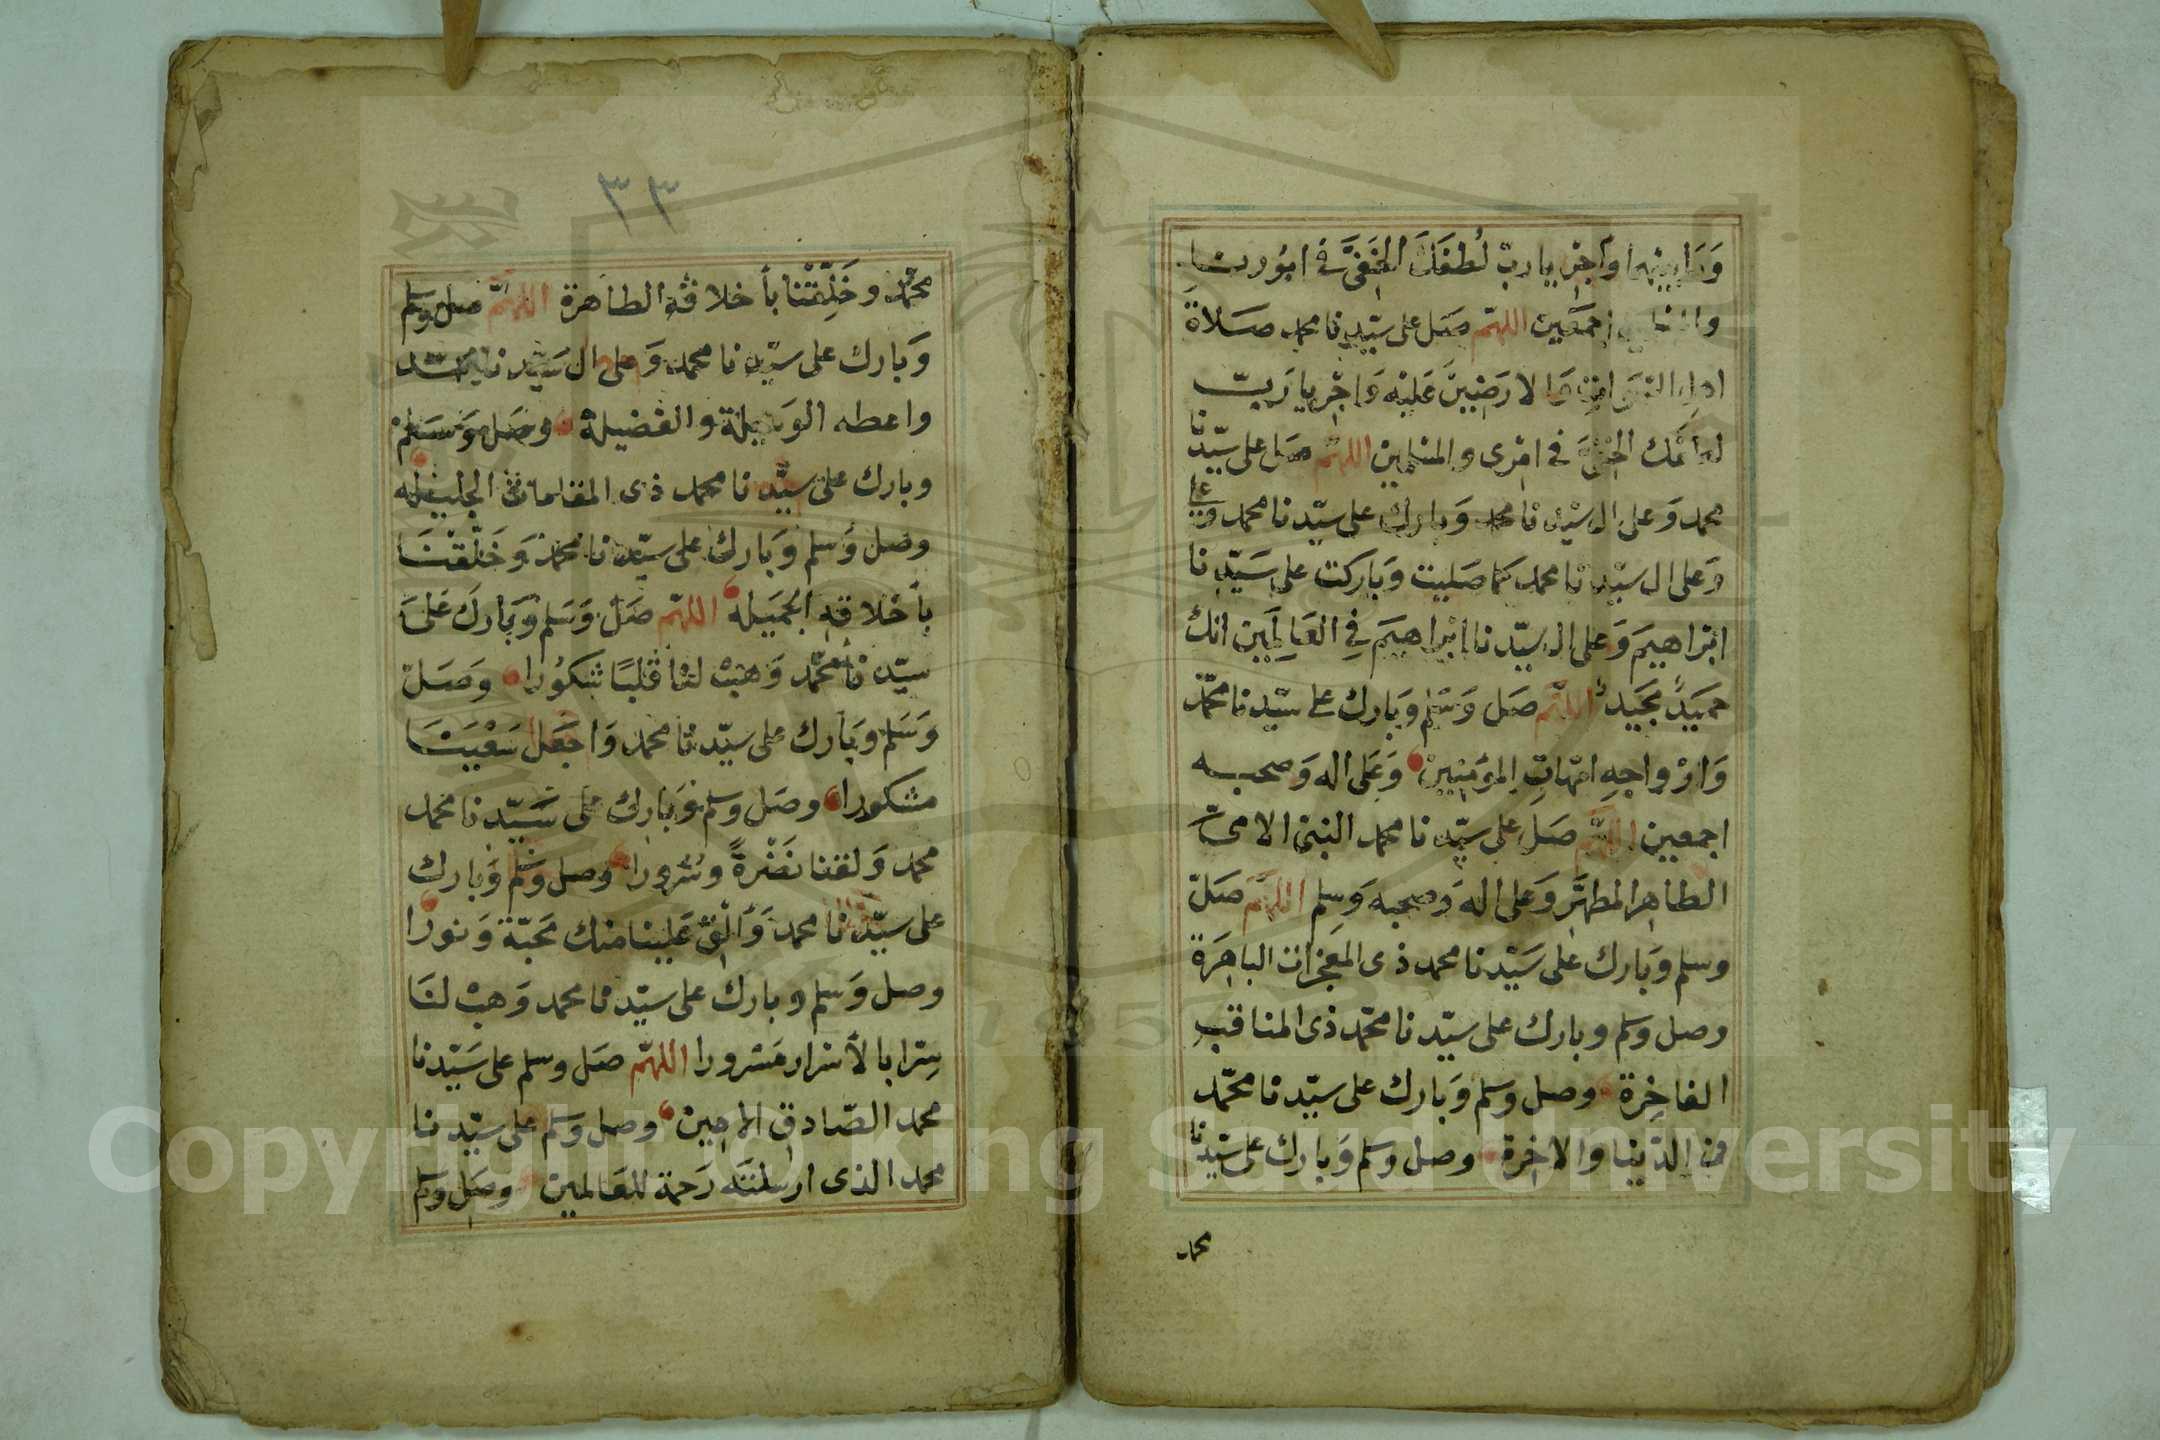 وَدَابِيْنِهِا واَجْرِ يارب لُطفَكَ الخَفَيَّ في امُورِنا
والمسلمين اجمعَين اللهمّ صَل على سيّدِنا محمد صَلاة
اهل السَموات والارضِينَ عَليْه وَاجْرِ يا رَبّ
لطفك الخفيّ في امْرى والمسْلمين اللهمّ صَل على سيّدنا
محمد وَعلى ال سيْدنا محمد وَبارك على سيّدنا محمد وعلى
وَعلى ال سيْدنا محمد كما صَليت وَباركت على سَيّدنا
ابْراهيمَ وَعلى ال سيّدنا ابْراهيَم فِي العَالِمَين انك
حمَيدٌ مجَيد اللهمّ صَل وَسْلم وبَارك على سيّدنا محمّد
وَازْواجهِ امّهاتِ المؤمِنِينْ وَعَلى اله وَصحبه
اجمعين اللهمّ صَلِ على سيّدنا محمد النبي الامى
الطاهِر المطهَّر وَعلى اله وَصحبه وَسلِم اللهمّ صَلّ
وسلم وبَارك على سَيْدنا محمد ذى المعَجزات الباهِرَة
وصل وسلم وبارك على سيّدنا محمّد ذى المناقب
الفاخِرة وصل وسلم وَبَارك على سيّدنا محمّد
في الدّنيا والاخِرة وصل وسلم وَبارك على سيّدنا
محمد
٣٣
محمّد وخَلِّقْنا بأخلاقهِ الطاهرة اللهمّ صل وسلم
وَبارك على سيّدنا محمد وَعلى ال سَيّدنا محمّد
واعطه الوَسيلة والفضيلة وصَل وَسَلمْ
وبارك على سيّدنا محمد ذى المقامات الجليلَه
وصل وَسلم وَبَارك على سيّدنا محمد وَخَلّقْنَا
بأخْلاقهِ الجمَيله اللهمّ صَل وَسَلم وَبَارك عَلى
سيّدنا محمّد وَهبْ لنا قلبًا شكوُرا وَصَل
وَسَلم وبَارك على سيّدنا محمد وَاجعَل سَعْيَنَا
مشكورا وصَل وسلم وَبَارك على سَيّدنا محمد
محمد وَلقنا نضْرةً وسُرورا وصل وسَلم وَبارك
على سيّدنا محمد وَاَلْقِ عَلينا منك مَحَبّة وَنورا
وصل وَسلم وبارك على سيّدنا محمد وَهبْ لنَا
سِرا بالأسْرار مسْرورا اللهمّ صَل وسلم على سَيّدنا
محمد الصّادِق الامين وصل وسلم على سيّدنا
محمد الذى ارسلتَه رَحمة للعَالمين وصَل وسلم
Copyright © King Saud University